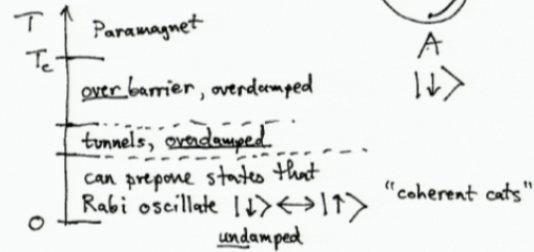 T
Paramagnet
Tc
A
over barrier, overdamped
|↓>
tunnels, overdamped
can prepone states that
Rabi oscillate |↓> ↔ |↑>
"coherent cats"
0
undamped